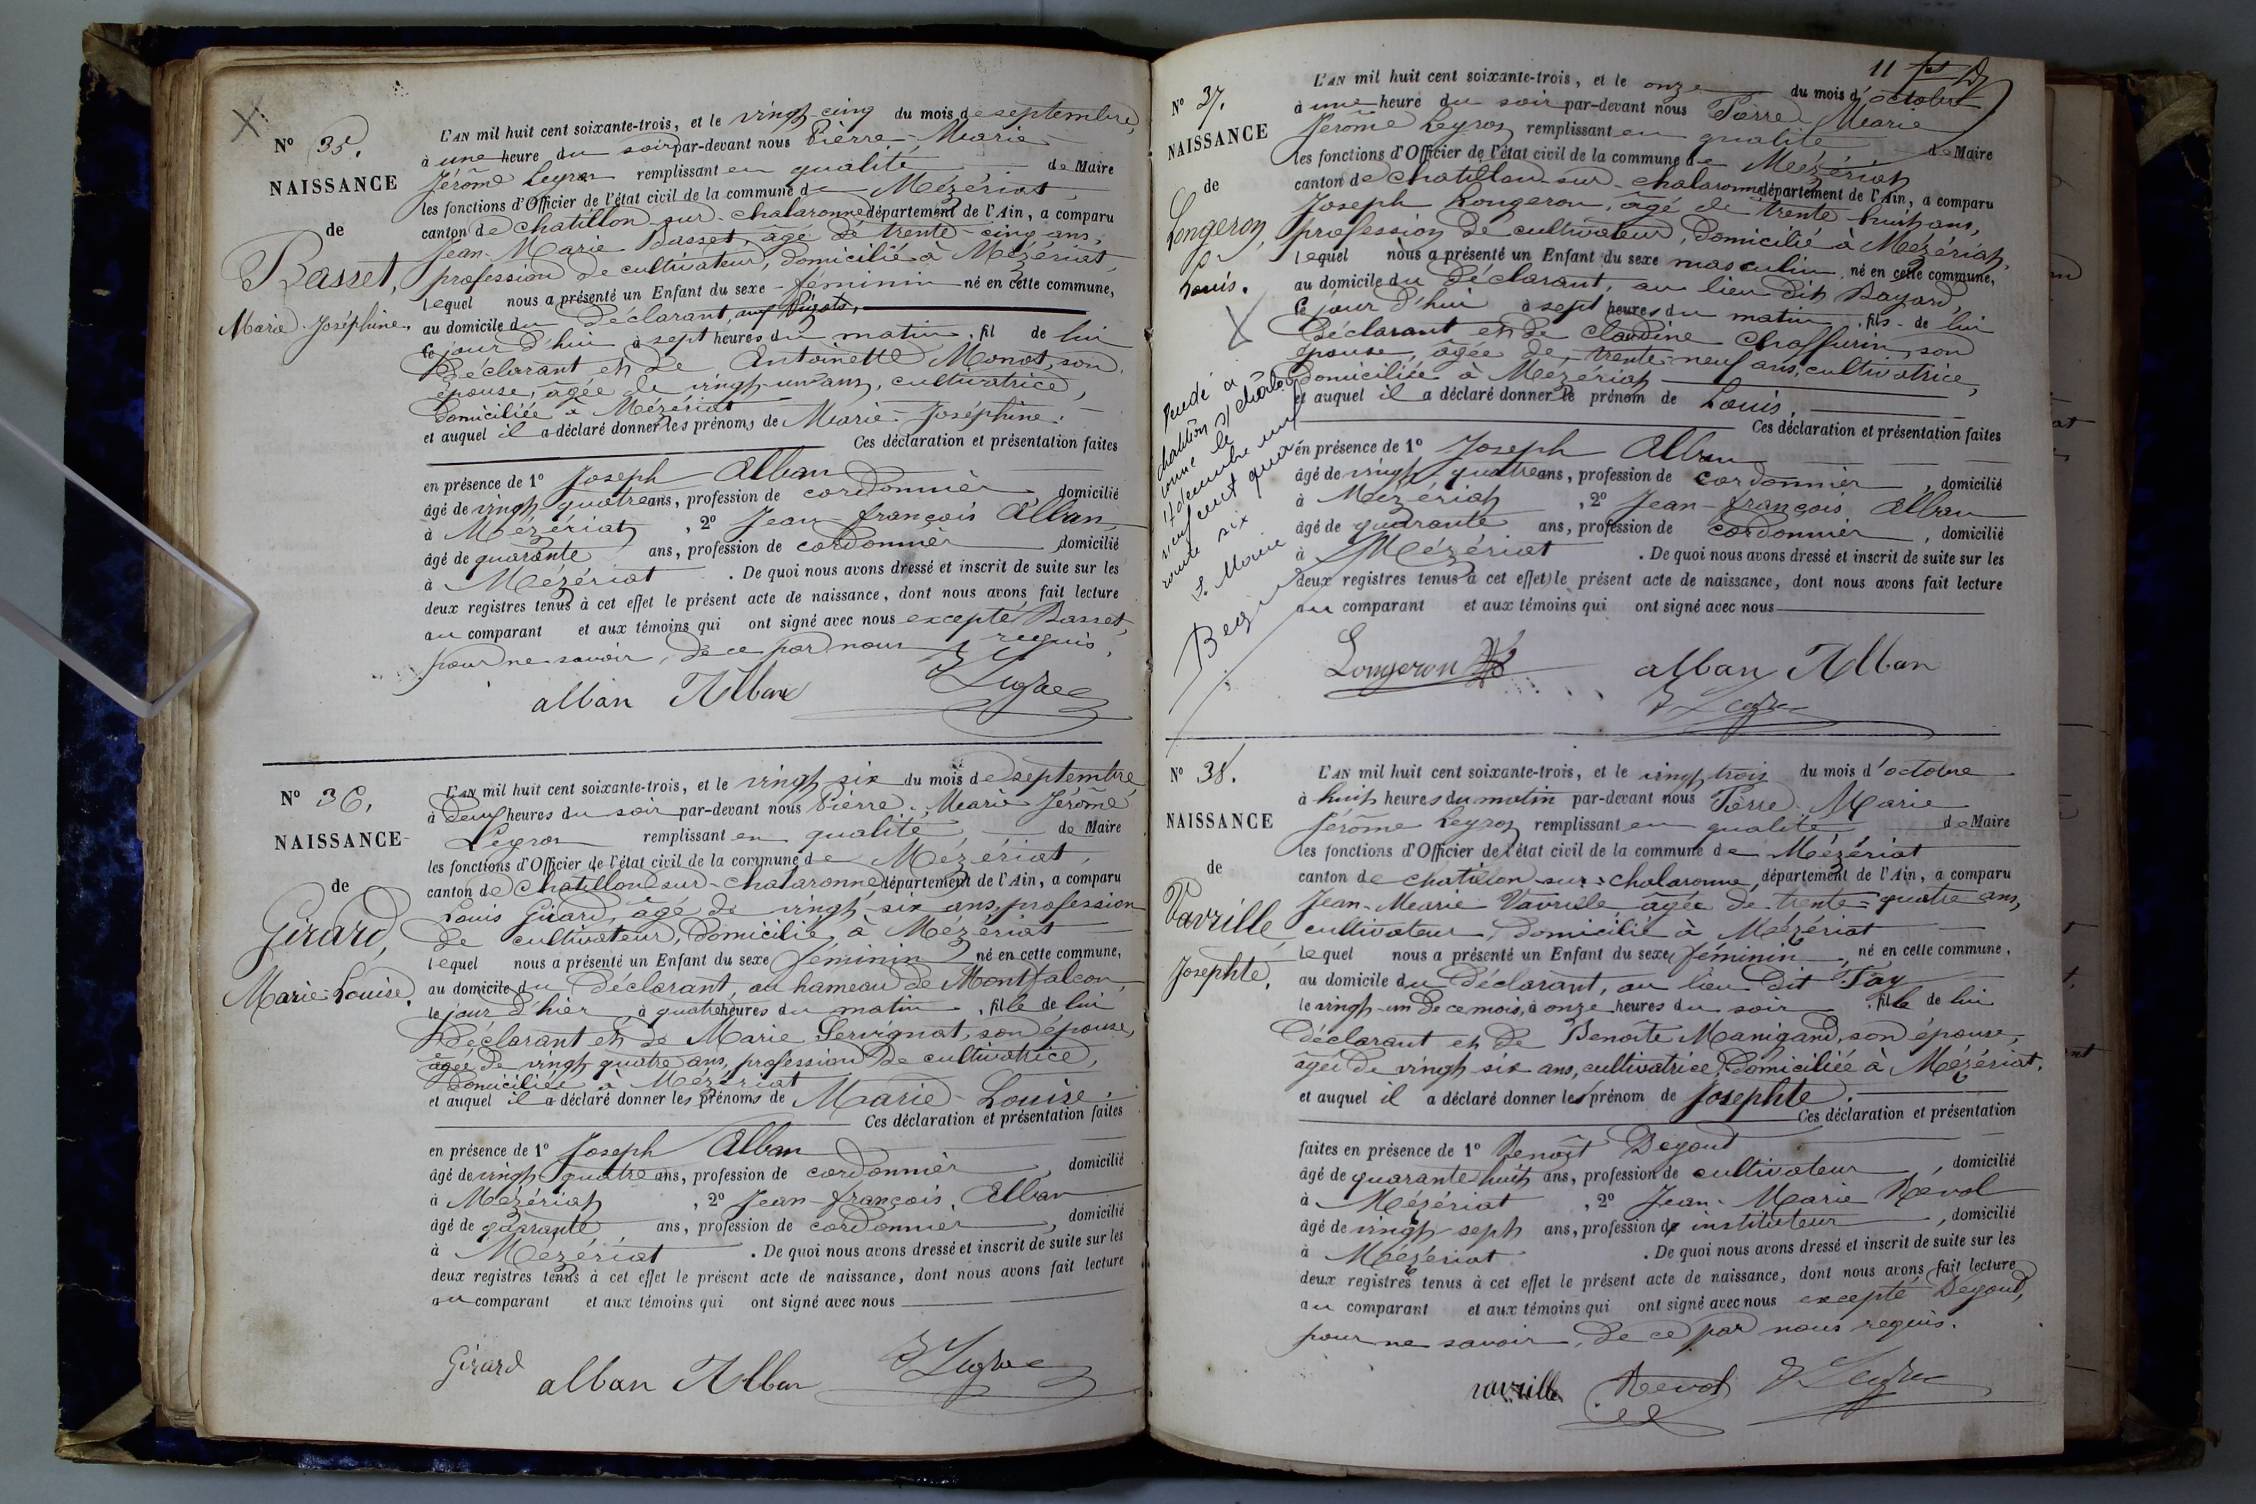 Nº 35.
NAISSANCE
de
Basset,
Marie-Joséphine.
L'AN mil huit cent soixante-trois, et le vingt-cinq du mois de septembre,
à une heure du soir par-devant nous Pierre-Marie
Jérôme Leyron remplissant en qualité de Maire
les fonctions d'Officier de l'état civil de la commune de Mézériat,
canton de chatillon-sur-chalaronne département de l'Ain, a comparu
Jean-Marie Basset, âgé de trente-cinq ans,
profession de cultivateur, domicilié à Mézériat,
lequel nous a présenté un Enfant du sexe féminin né en cette commune,
au domicile du déclarant,
ce jour d'hui à sept heures du matin, fil de lui
Déclarant et de Antoinette Monot, son
épouse, âgée de vingt-un ans, cultivatrice,
domiciliée à Mézériat
et auquel il a déclaré donner les prénoms de Marie-Joséphine.
Ces déclaration et présentation faites
en présence de 1º Joseph Alban
âgé de vingt quatre ans, profession de cordonnier, domicilié
à Mézériat, 2º Jean-françois Alban,
âgé de quarante ans, profession de cordonnier, domicilié
à Mézériat. De quoi nous avons dressé et inscrit de suite sur les
deux registres tenus à cet effet le présent acte de naissance, dont nous avons fait lecture
au comparant et aux témoins qui ont signé avec nous excepté Basset,
pour ne savoir, de ce par nous requis.
alban Alban
Nº 36.
NAISSANCE
de
Girard,
Marie-Louise.
L'AN mil huit cent soixante-trois, et le vingt six du mois de septembre
à deux heures du soir par-devant nous Pierre-Marie Jérôme
Leyron remplissant en qualité de Maire
les fonctions d'Officier de l'état civil de la commune de Mézériat,
canton de chatillon-sur-chalaronne département de l'Ain, a comparu
Louis Girard, âgé de vingt six ans, profession
de cultivateur, domicilié à Mézériat
lequel nous a présenté un Enfant du sexe féminin né en cette commune,
au domicile du déclarant, au hameau de Montfalcon,
le jour d'hier, à quatre heures du matin, fille de lui
Déclarant et de Marie Servignat, son épouse,
âgée de vingt quatre ans, profession de cultivatrice,
domiciliée à Mézériat
et auquel il a déclaré donner les prénoms de Marie-Louise.
Ces déclaration et présentation faites
en présence de 1º Joseph Alban
âgé de vingt quatre ans, profession de cordonnier, domicilié
à Mézériat, 2º Jean-françois Alban
âgé de quarante ans, profession de cordonnier, domicilié
à Mézériat. De quoi nous avons dressé et inscrit de suite sur les
deux registres tenus à cet effet le présent acte de naissance, dont nous avons fait lecture
au comparant et aux témoins qui ont signé avec nous
Girard alban Alban
11
Nº 37.
NAISSANCE
de
Longeron,
Louis.
L'AN mil huit cent soixante-trois, et le onze du mois d'octobre
à une heure du soir par-devant nous Pierre Marie
Jérôme Leyron remplissant en qualité de Maire
les fonctions d'Officier de l'état civil de la commune de Mézériat
canton de chatillon-sur-chalaronne département de l'Ain, a comparu
Joseph Longeron, âgé de trente-huit ans,
profession de cultivateur, domicilié à Mézériat,
lequel nous a présenté un Enfant du sexe masculin, né en cette commune,
au domicile du déclarant, au lieu dit Bayard,
ce jour d'hui à sept heures du matin, fils de lui
Déclarant et de Claudine Chaffurin, son
épouse, âgée de trente-neuf ans, cultivatrice,
domiciliée à Mézériat
et auquel il a déclaré donner le prénom de Louis.
Ces déclaration et présentation faites
en présence de 1º Joseph Alban
âgé de vingt quatre ans, profession de cordonnier, domicilié
à Mézériat, 2º Jean-françois Alban
âgé de quarante ans, profession de cordonnier, domicilié
à Mézériat. De quoi nous avons dressé et inscrit de suite sur les
deux registres tenus à cet effet le présent acte de naissance, dont nous avons fait lecture
au comparant et aux témoins qui ont signé avec nous
Longeron alban Alban
chatillon s/ chala
ronne le
décembre mil
neuf cent qua
rante six
Nº 38.
NAISSANCE
de
Vavrille
Josephte.
L'AN mil huit cent soixante-trois, et le vingt trois du mois d'octobre
à huit heures du matin par-devant nous Pierre-Marie
Jérôme Leyron remplissant en qualité de Maire
les fonctions d'Officier de l'état civil de la commune de Mézériat
canton de chatillon-sur-chalaronne, département de l'Ain, a comparu
Jean-Marie Vavrille âgée de trente-quatre ans,
cultivateur, domicilié à Mézériat
lequel nous a présenté un Enfant du sexe féminin, né en cette commune,
au domicile du déclarant, au lieu dit Tay
le vingt-un de ce mois, à onze heures du soir, fille de lui
déclarant et de Benoîte Manigand, son épouse,
âgée de vingt six ans, cultivatrice, domiciliée à Mézériat.
et auquel il a déclaré donner le prénom de Josephte.
Ces déclaration et présentation
faites en présence de 1º Benoît Degout
âgé de quarante huit ans, profession de cultivateur, domicilié
à Mézériat, 2º Jean-Marie Revol
âgé de vingt sept ans, profession de instituteur, domicilié
à Mézériat. De quoi nous avons dressé et inscrit de suite sur les
deux registres tenus à cet effet le présent acte de naissance, dont nous avons fait lecture
au comparant et aux témoins qui ont signé avec nous excepté Degout,
pour ne savoir, de ce par nous requis.
vavrille Revol